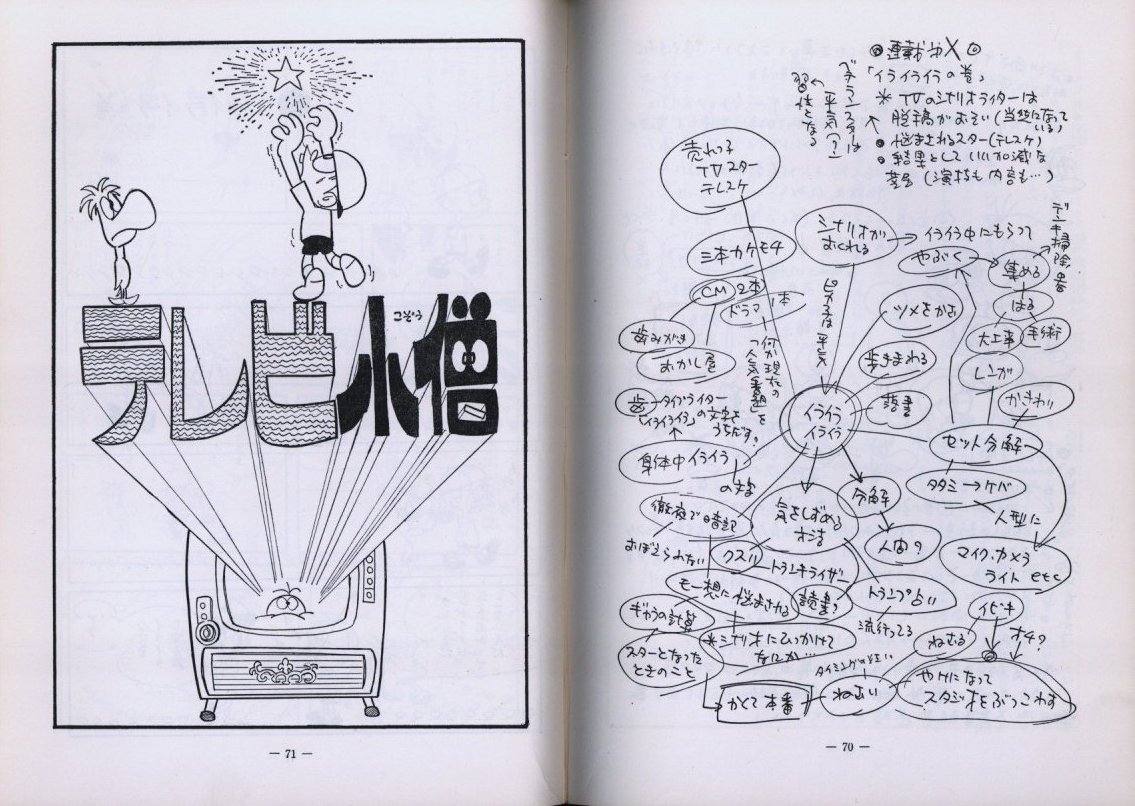 ◎連載カX◎
「イライライラの巻」
＊TVのシナリオライターは
脱稿がおそい(当然になっている)
●悩まされるスター(テレスケ)
●結果としていい加減な
ベテランスターは
平気(?)
習性となる
売れっ子
TVスター
テレスケ
三本カケモチ
CM2本
ドラマ1本
歯みがき
おかし屋
何か現在の
「人気番組」を
シナリオが
おくれる
ピカ子は平気
イライラ中にもらって
やぶく
集める
デンキ掃除器
はる
大工事
手術
ツメをかむ
歩きまわる
読書
レンガ
かさねい
イライラ
イライラ
セット分解
タタミ→ケバ
人型に
マイク、カメラ
ライト etc
歯
タイプライター
「イライライラ」の文字を
うちだす。
身体中イライラ
の文字
徹夜で暗記
おぼえられない
気をしずめる
オマケ
分解
人間?
クスリ
トランキライザー
モー想に悩まされる
読書?
トランプ占い
流行ってる
ギャラの計算
スターとなった
ときのこと
＊シナリオにひっかけて
なにか…
かくて本番
タイミングのよい
ねむい
ねむる
イビキ
オチ?
やけになって
スタジオをぶっこわす
— 70 —
テレビ小僧
こぞう
— 71 —